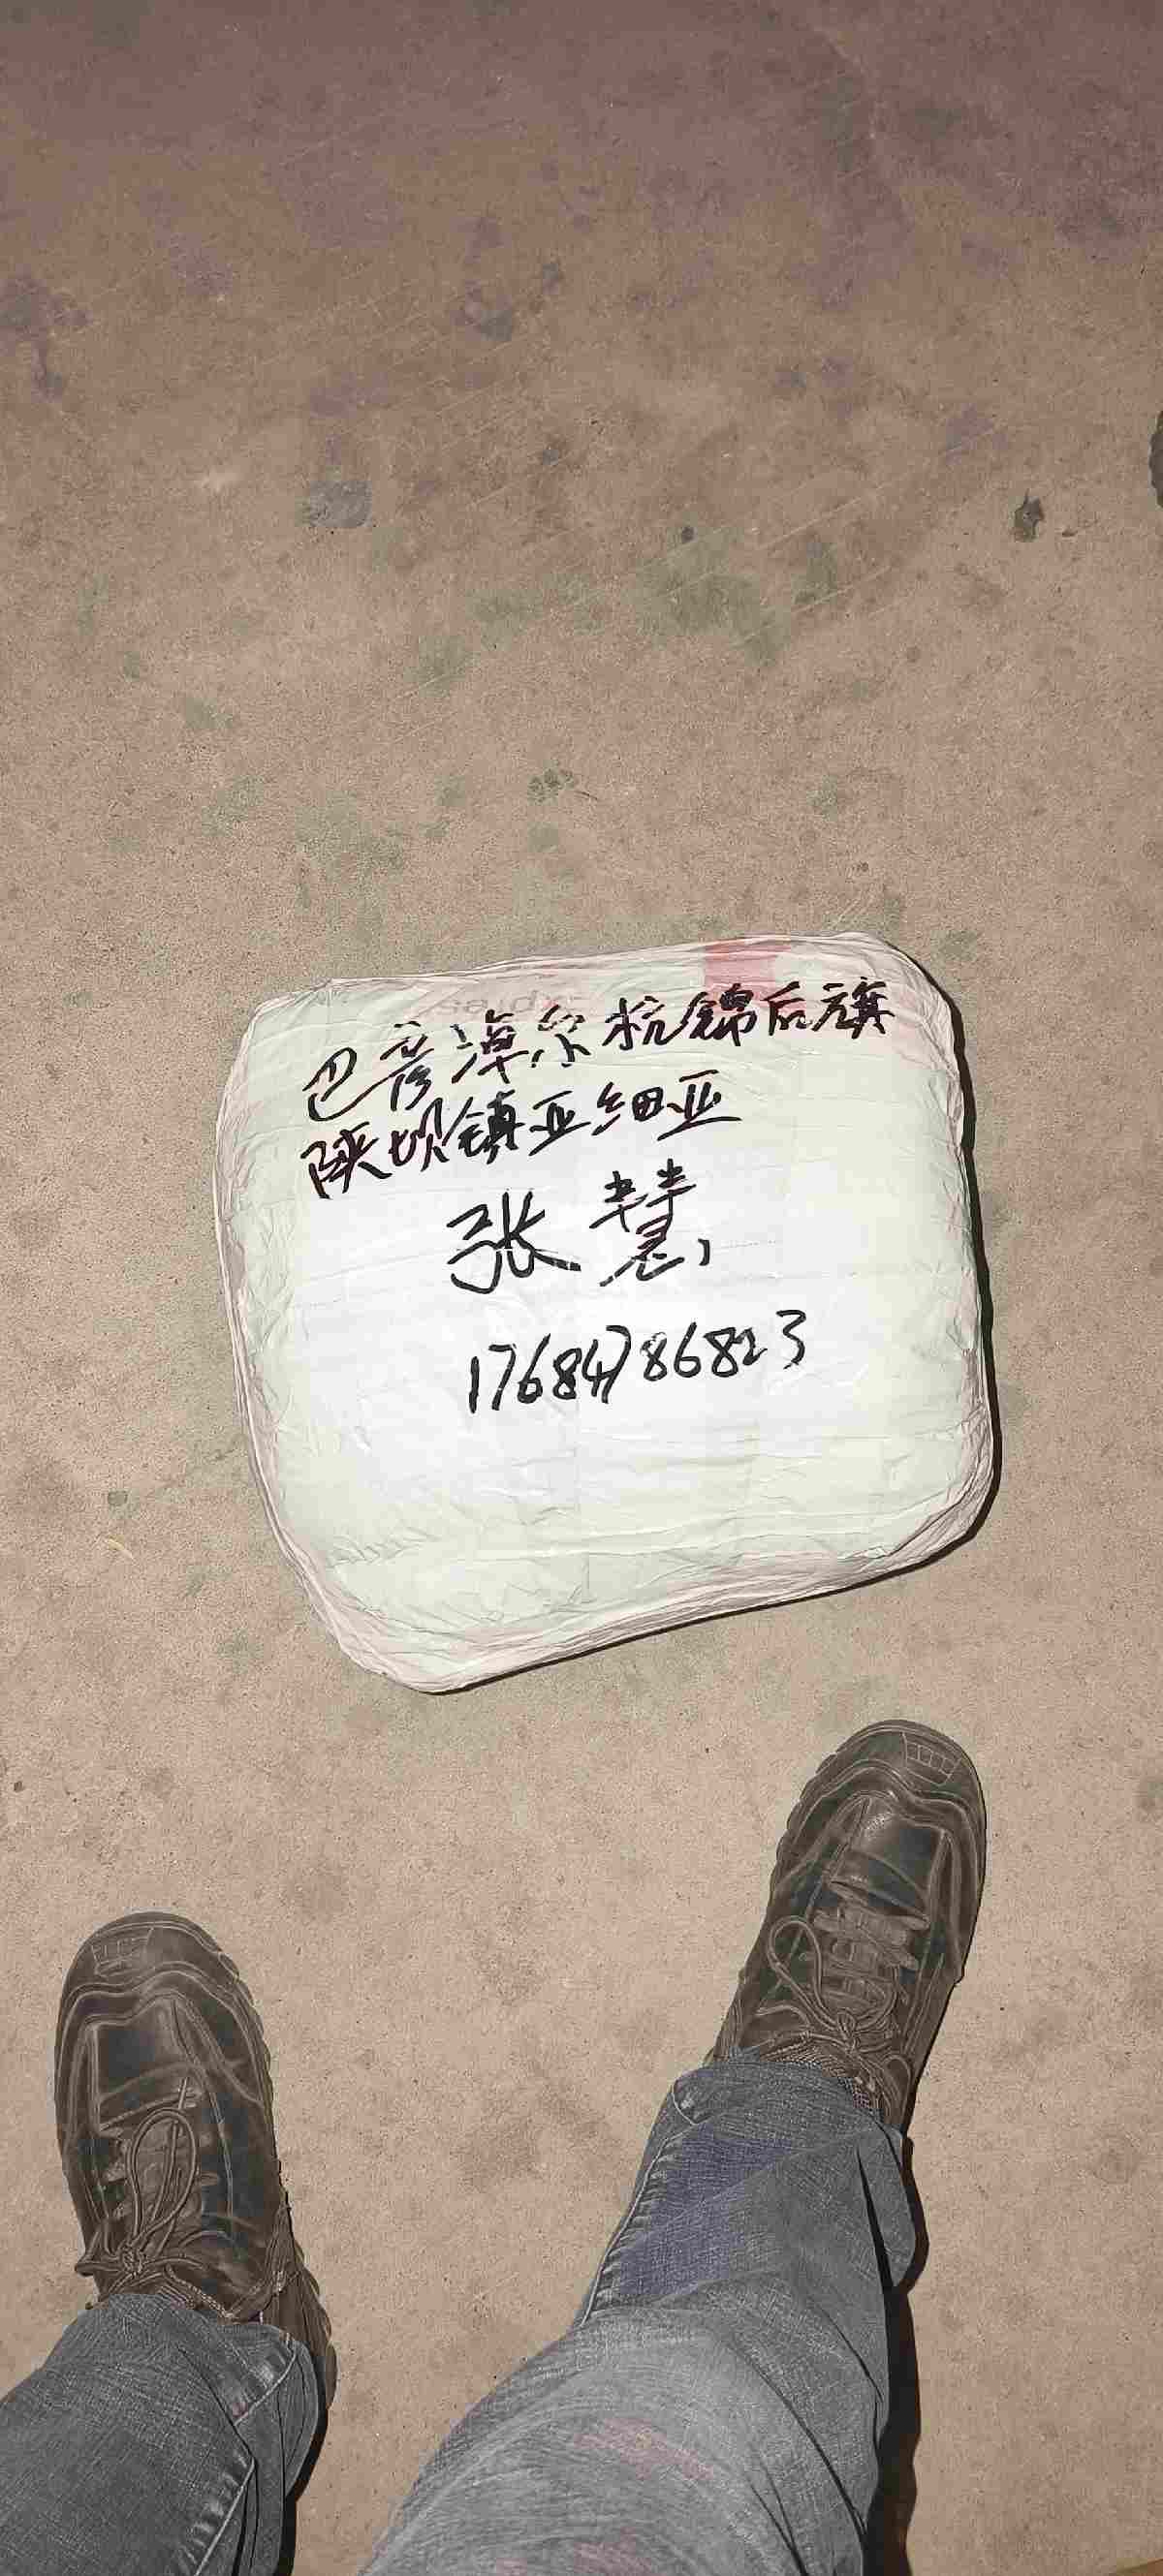 巴彦淖尔杭锦后旗
陕坝镇亚细亚
张慧
17684786823